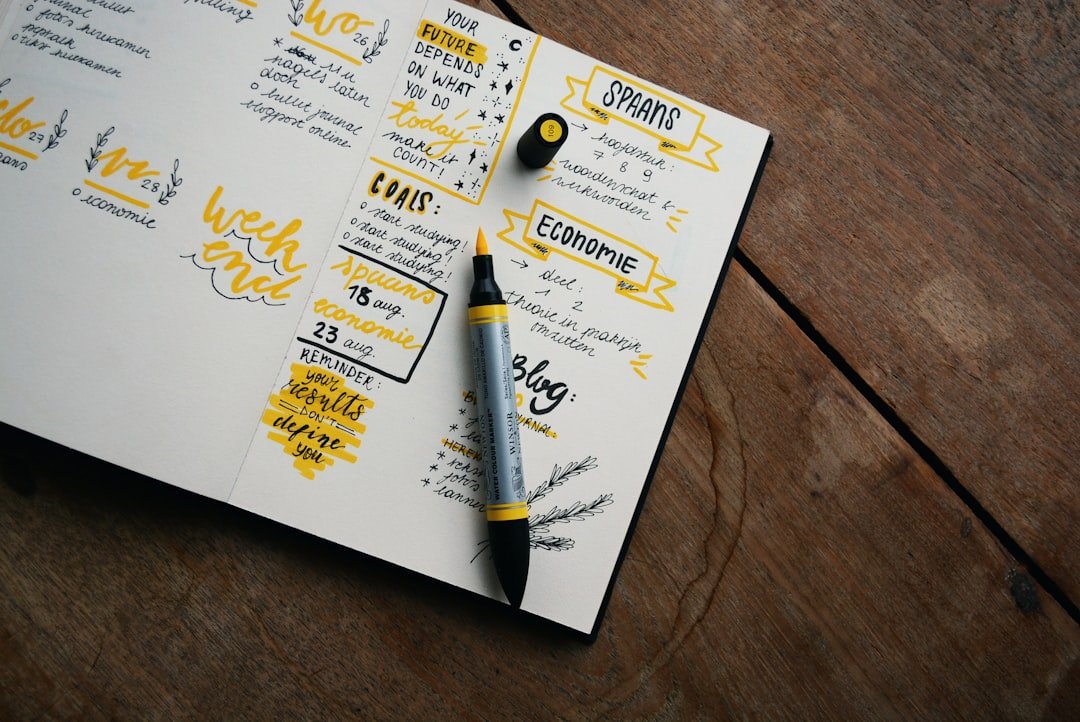 journal
o foto's
o
spelling
wo 26
nagels laten
doen
o bullet journal
blogpost online
do 27
vr 28
o economie
week
end
YOUR
FUTURE
DEPENDS
ON WHAT
YOU DO
today
make it
COUNT!
GOALS:
o start studying!
o start studying!
o start studying!
spaans
18 aug.
economie
23 aug.
REMINDER:
your
results
DON'T
define
you
SPAANS
→ hoofdstuk:
7 8 9
woordenschat &
werkwoorden
ECONOMIE
→ deel:
1 2
theorie in praktijk
omzetten
Blog:
109
WATER COLOUR MARKER
WINSOR